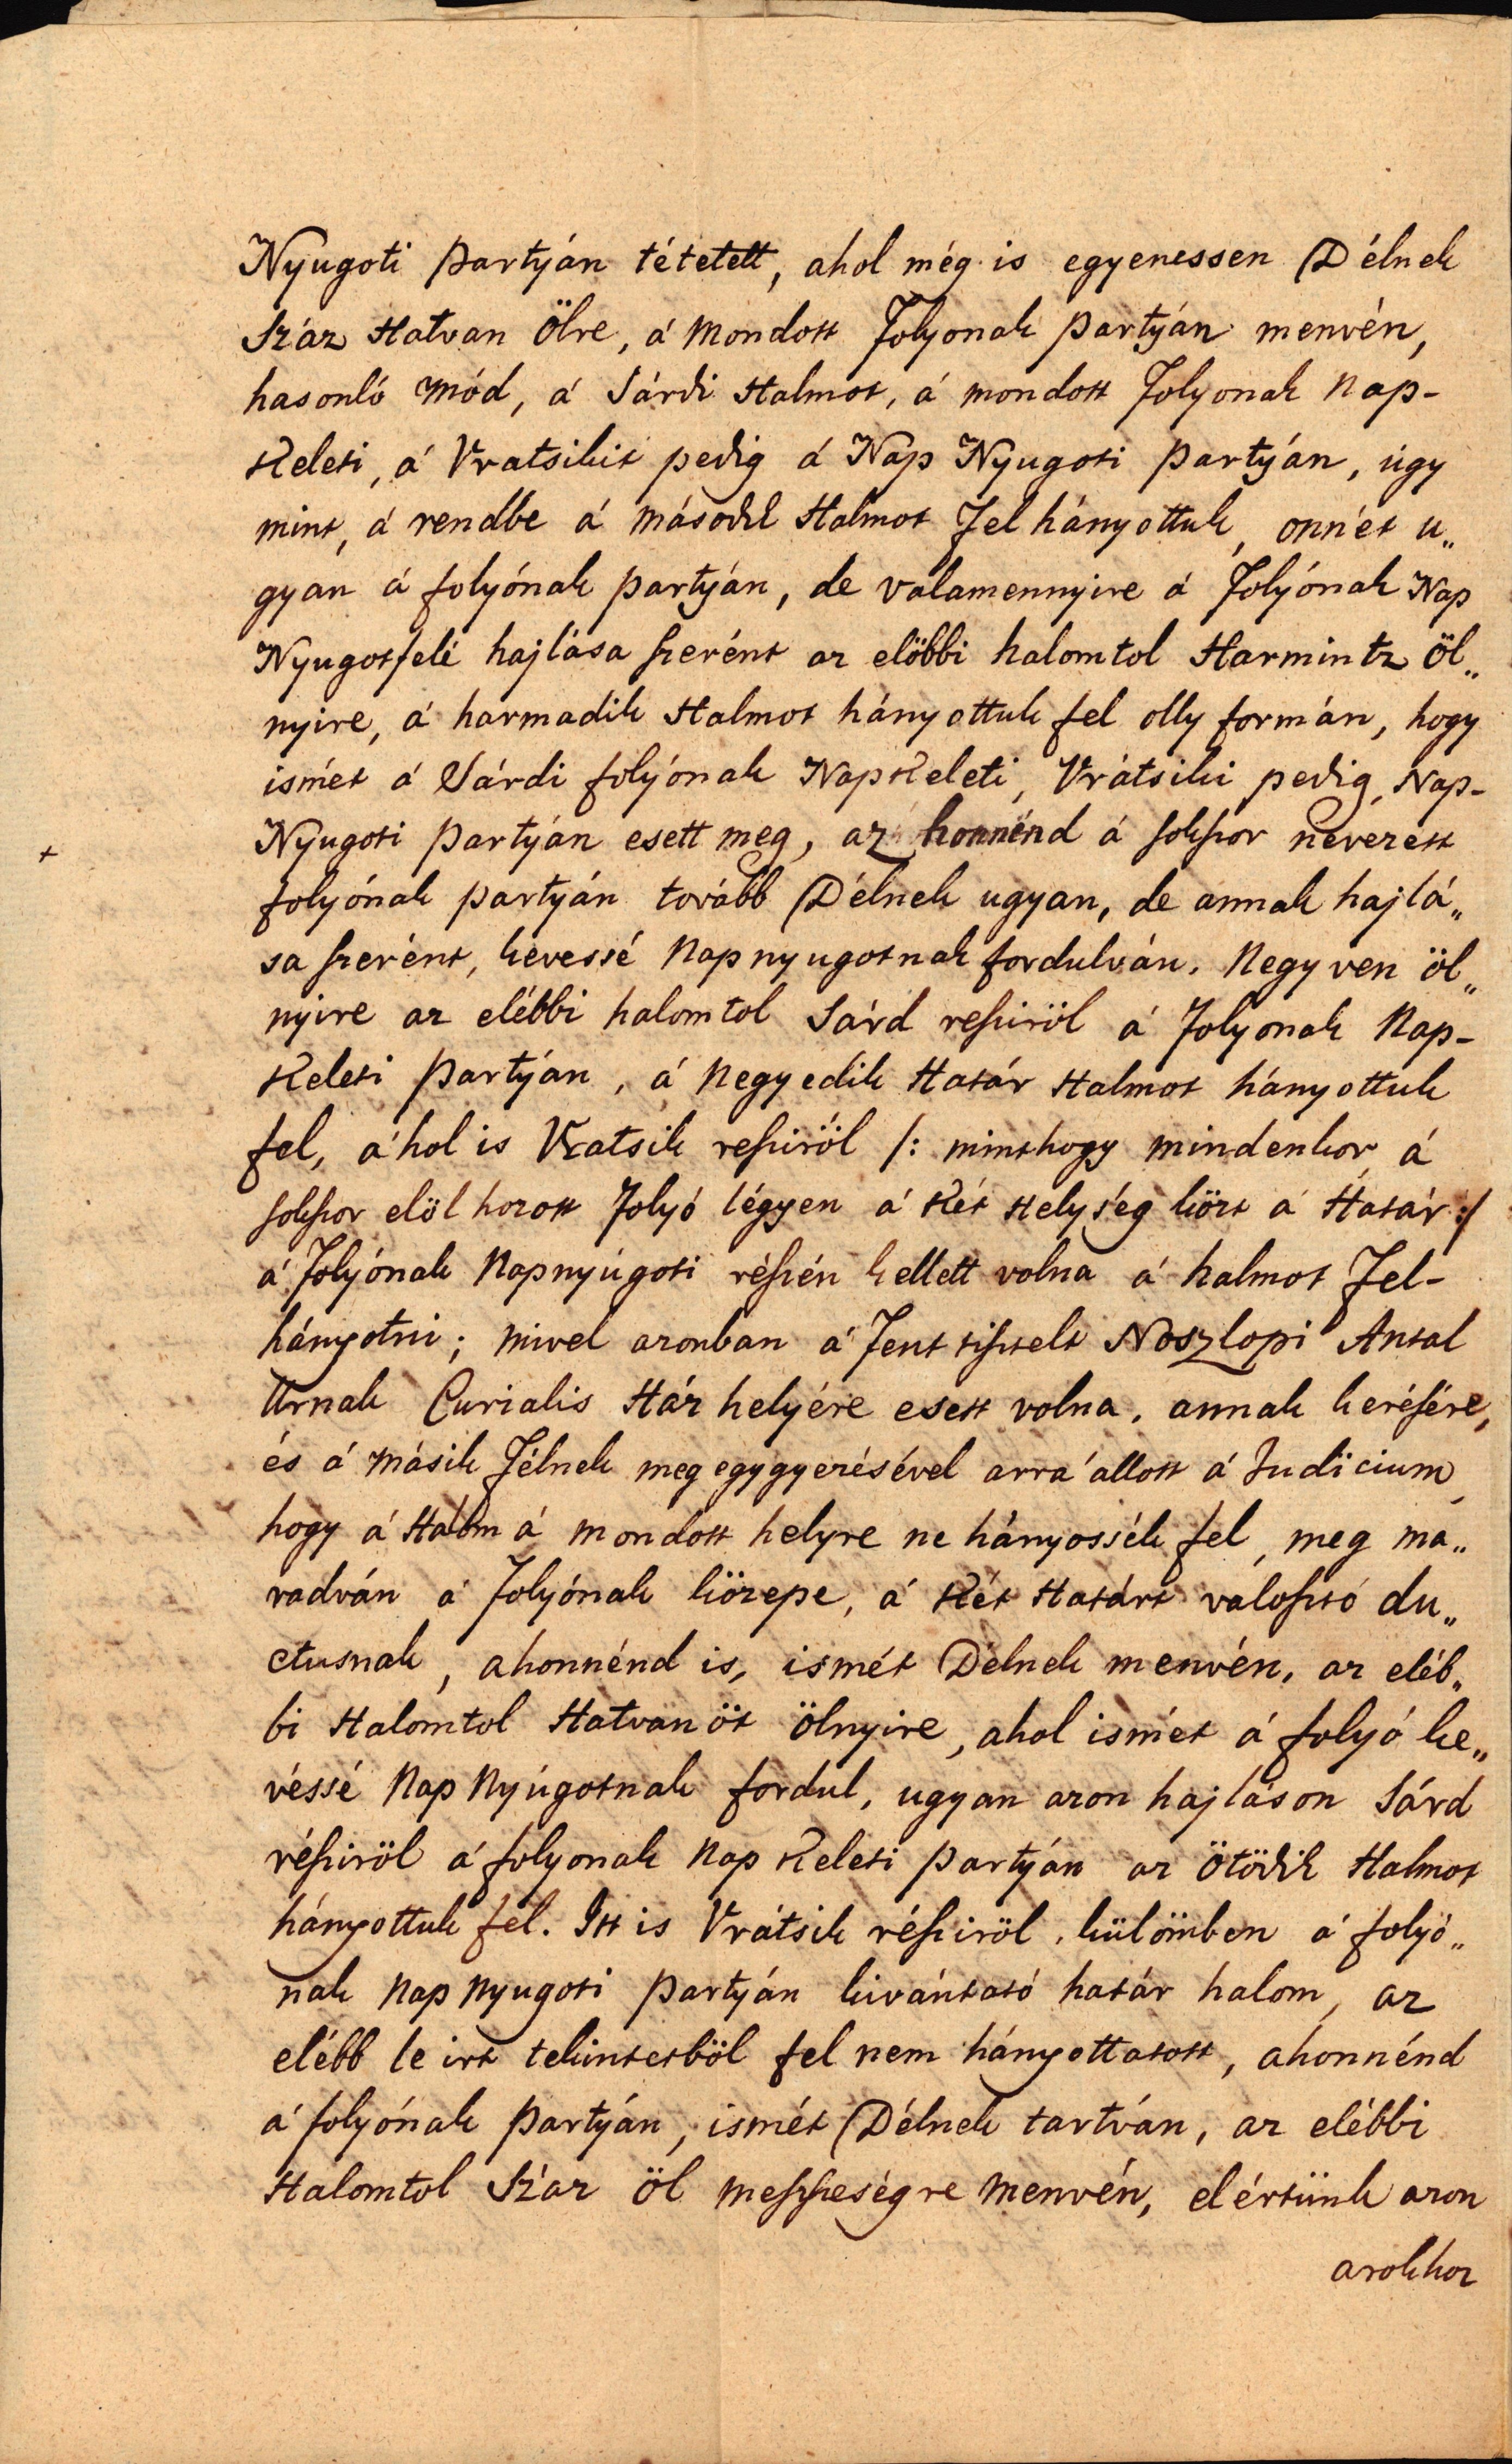 Nyugoti partyán tétetett, ahol még is egyenessen Délnek
Száz Hatvan Ölre, á Mondott Folyonak partyán menvén,
hasonló Mód, á Sárdi Halmot, á mondott Folyonak Nap-
Keleti, á Vratsikit pedig á Nap Nyugoti partyán, úgy
mint, á rendbe á második Halmot Fel hányottuk, onnét u„
gyan á folyónak partyán, de valamennyire á Folyónak Nap
Nyugotfelé hajlása szerént az elöbbi halomtol Harmintz Öl„
nyire, á harmadik Halmot hányottuk fel olly formán, hogy
ismét á Sárdi folyónak NapKeleti, Vrátsiki pedig, Nap-
Nyugoti partyán esett meg, az honnénd á sokszor nevezett
folyónak partyán tovább Délnek ugyan, de annak hajlá„
sa szerént, kevessé Napnyugotnak fordulván, Negyven öl„
nyire az elébbi halomtol Sárd resziröl á Folyonak Nap-
Keleti Partyán, á Negyedik Határ Halmot hányottuk
fel, á hol is Vratsik resziröl /: minthogy mindenkor á
sokszor elöl hozott Folyó légyen á Két Helység közt á Határ :/
á Folyónak Napnyúgoti részén kellett volna á halmot Fel-
hányotni; Mivel azonban á Fent tisztelt Noszlopi Antal
Urnak Curialis Ház helyére esett volna, annak kerésére,
és á másik Félnek meg egygyezésével arra állott á Judicium,
hogy á Halom á mondott helyre ne hányossék fel, meg ma„
radván á Folyónak közepe, á Két Határt valosztó du„
ctusnak, ahonnénd is, ismét Délnek menvén, az eléb„
bi Halomtol Hatvan öt ölnyire, ahol ismét á folyó ke„
véssé Nap Nyúgotnak fordul, ugyan azon hajláson Sárd
résziröl á folyonak Nap Keleti partyán az Ötödik Halmot
hányottuk fel. Itt is Vrátsik résziröl, külömben á folyó„
nak Nap Nyugoti partyán kivántató határ halom, az
elébb le irt tekintetböl fel nem hányottatott, ahonnénd
á folyónak partyán, ismét Délnek tartván, az elébbi
Halomtol Száz Öl messzeségre Menvén, elértünk azon
arokhoz